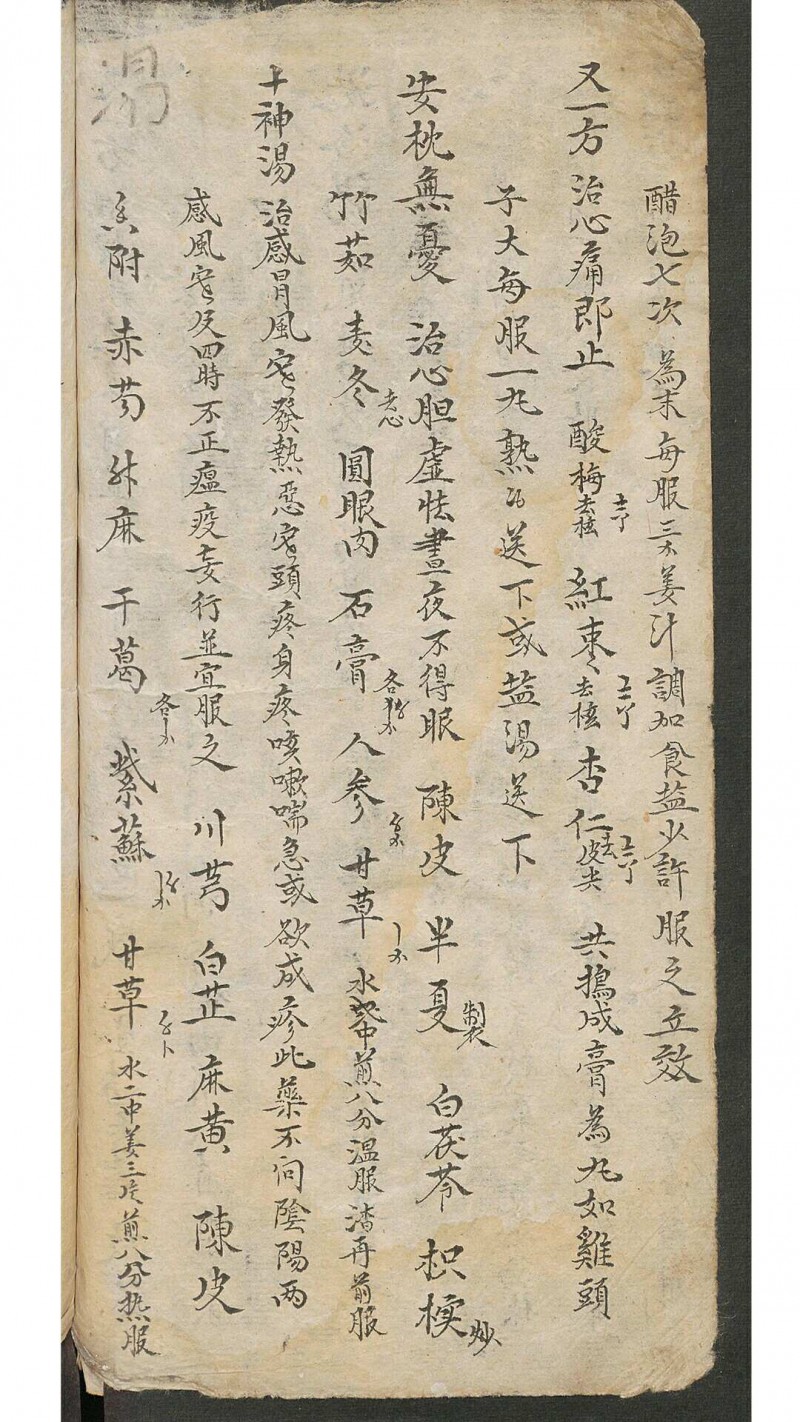 醋泡七次為末每服三尒姜汁調加食益少許服之立效
又一方治心痛即止 酸梅去核 紅棗去核 杏仁去皮尖 共搗成膏為丸如雞頭
子大每服一丸熟送下或益湯送下
安枕無憂 治心胆虛怯晝夜不得眠 陳皮 半夏製 白茯苓 枳椇炒
竹茹 麦冬去心 圓眼肉 石膏各 人參 甘草 水煎八分溫服渣再煎服
十神湯 治感冒風寒發熱惡寒頭疼身疼咳嗽喘急或欲成疹此藥不问陰陽两
感風寒及四時不正瘟疫妄行並宜服之 川芎 白芷 麻黄 陳皮
香附 赤芍 升麻 干葛各 紫蘇 甘草 水二中姜三片煎八分热服
湯